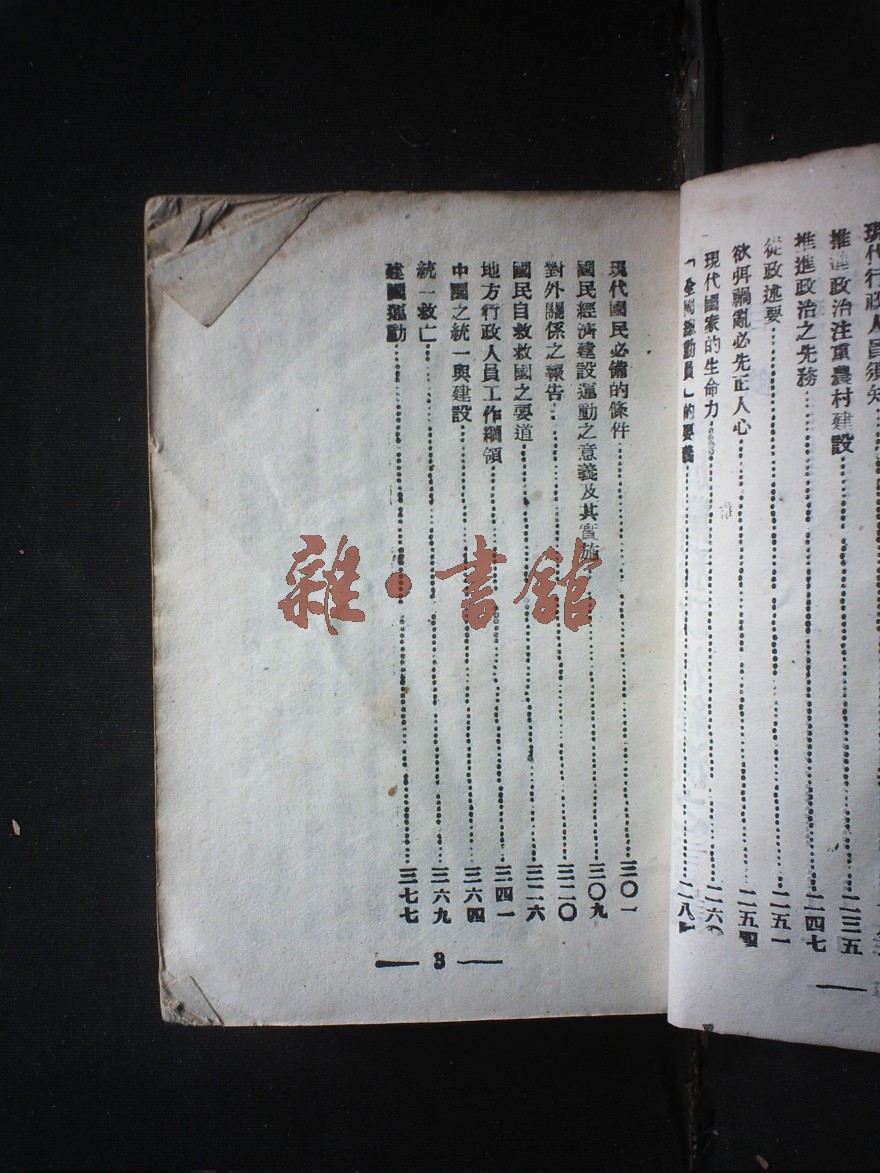 現代行政人員須知
推進政治注重農村建設 二三五
推進政治之先務 二四七
從政述要 二五一
欲弭禍亂必先正人心 二五四
現代國家的生命力 二六〇
「全國總動員」的要義 二八
現代國民必備的條件 三〇一
國民經濟建設運動之意義及其實施 三〇九
對外關係之報告 三二〇
國民自救救國之要道 三二六
地方行政人員工作綱領 三四一
中國之統一與建設 三六四
統一救亡 三六九
建國運動 三七七
3
雜·書館